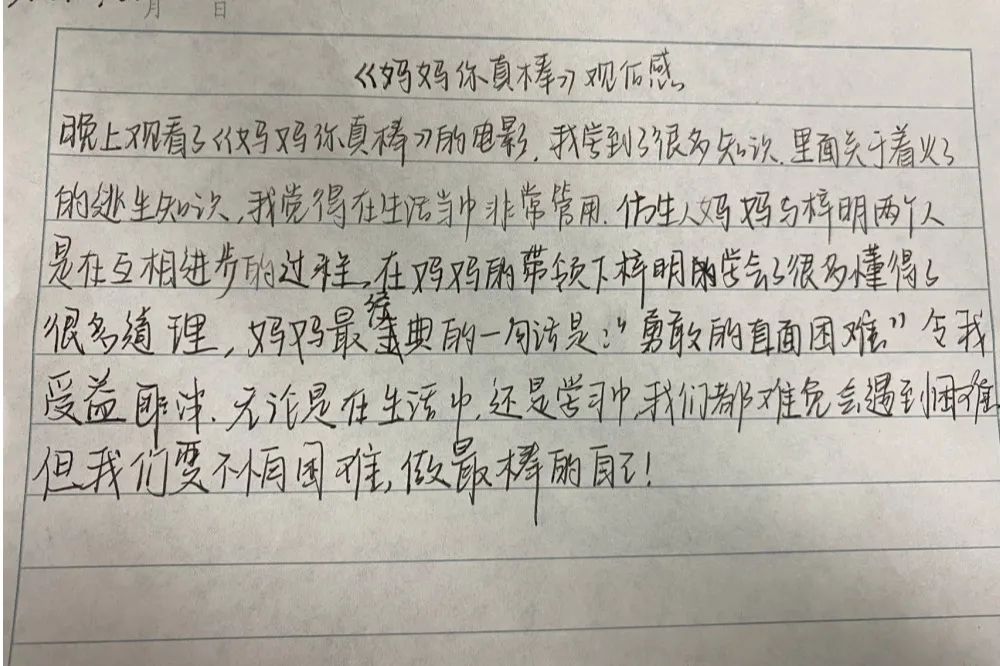 月 日
《妈妈你真棒》观后感
晚上观看了《妈妈你真棒》的电影,我学到了很多知识.里面关于着火了
的逃生知识,我觉得在生活当中非常管用.仿生人妈妈与梓明两个人
是在互相进步的过程,在妈妈的带领下梓明学会了很多懂得了
很多道理,妈妈最经典的一句话是:“勇敢的直面困难”令我
受益匪浅.无论是在生活中,还是学习中,我们都难免会遇到困难
但我们要不怕困难,做最棒的自己!